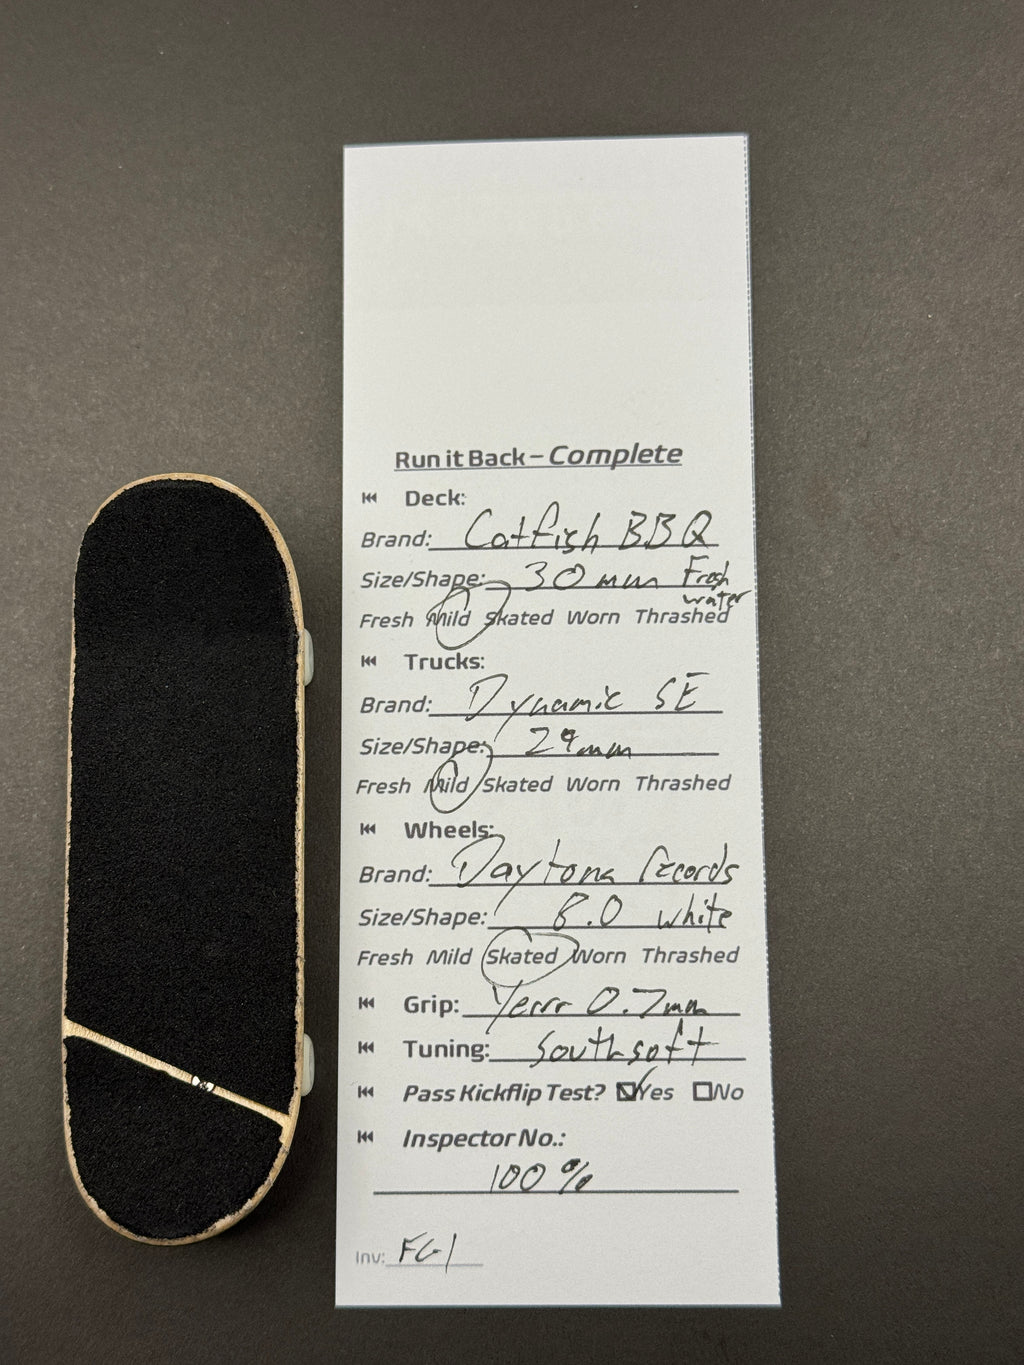 Run it Back – Complete
Deck:
Brand: Catfish BBQ
Size/Shape: 30mm Fresh
water
Fresh Mild Skated Worn Thrashed
Trucks:
Brand: Dynamic SE
Size/Shape: 29mm
Fresh Mild Skated Worn Thrashed
Wheels:
Brand: Daytona Records
Size/Shape: 8.0 white
Fresh Mild Skated Worn Thrashed
Grip: Yerrr 0.7mm
Tuning: Southsoft
Pass Kickflip Test? Yes No
Inspector No.:
100%
Inv: FG1